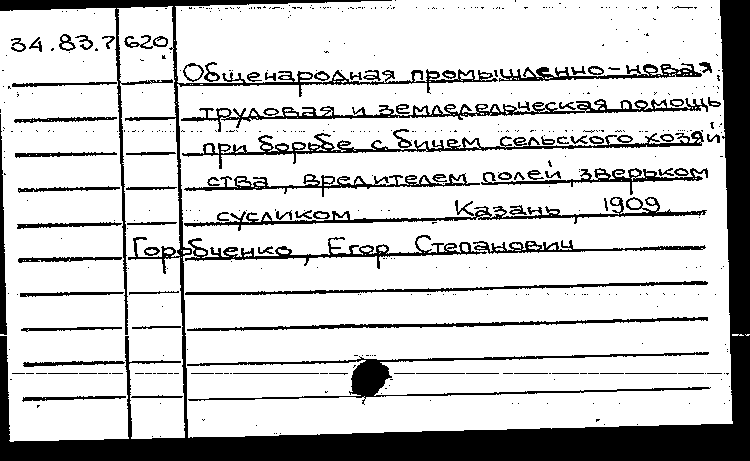 34.83.7 620.
Общенародная промышленно-новая
трудовая и земледельческая помощь
при борьбе с бичем сельского хозяй-
ства, вредителем полей, зверьком
сусликом Казань, 1909
Горобченко, Егор Степанович